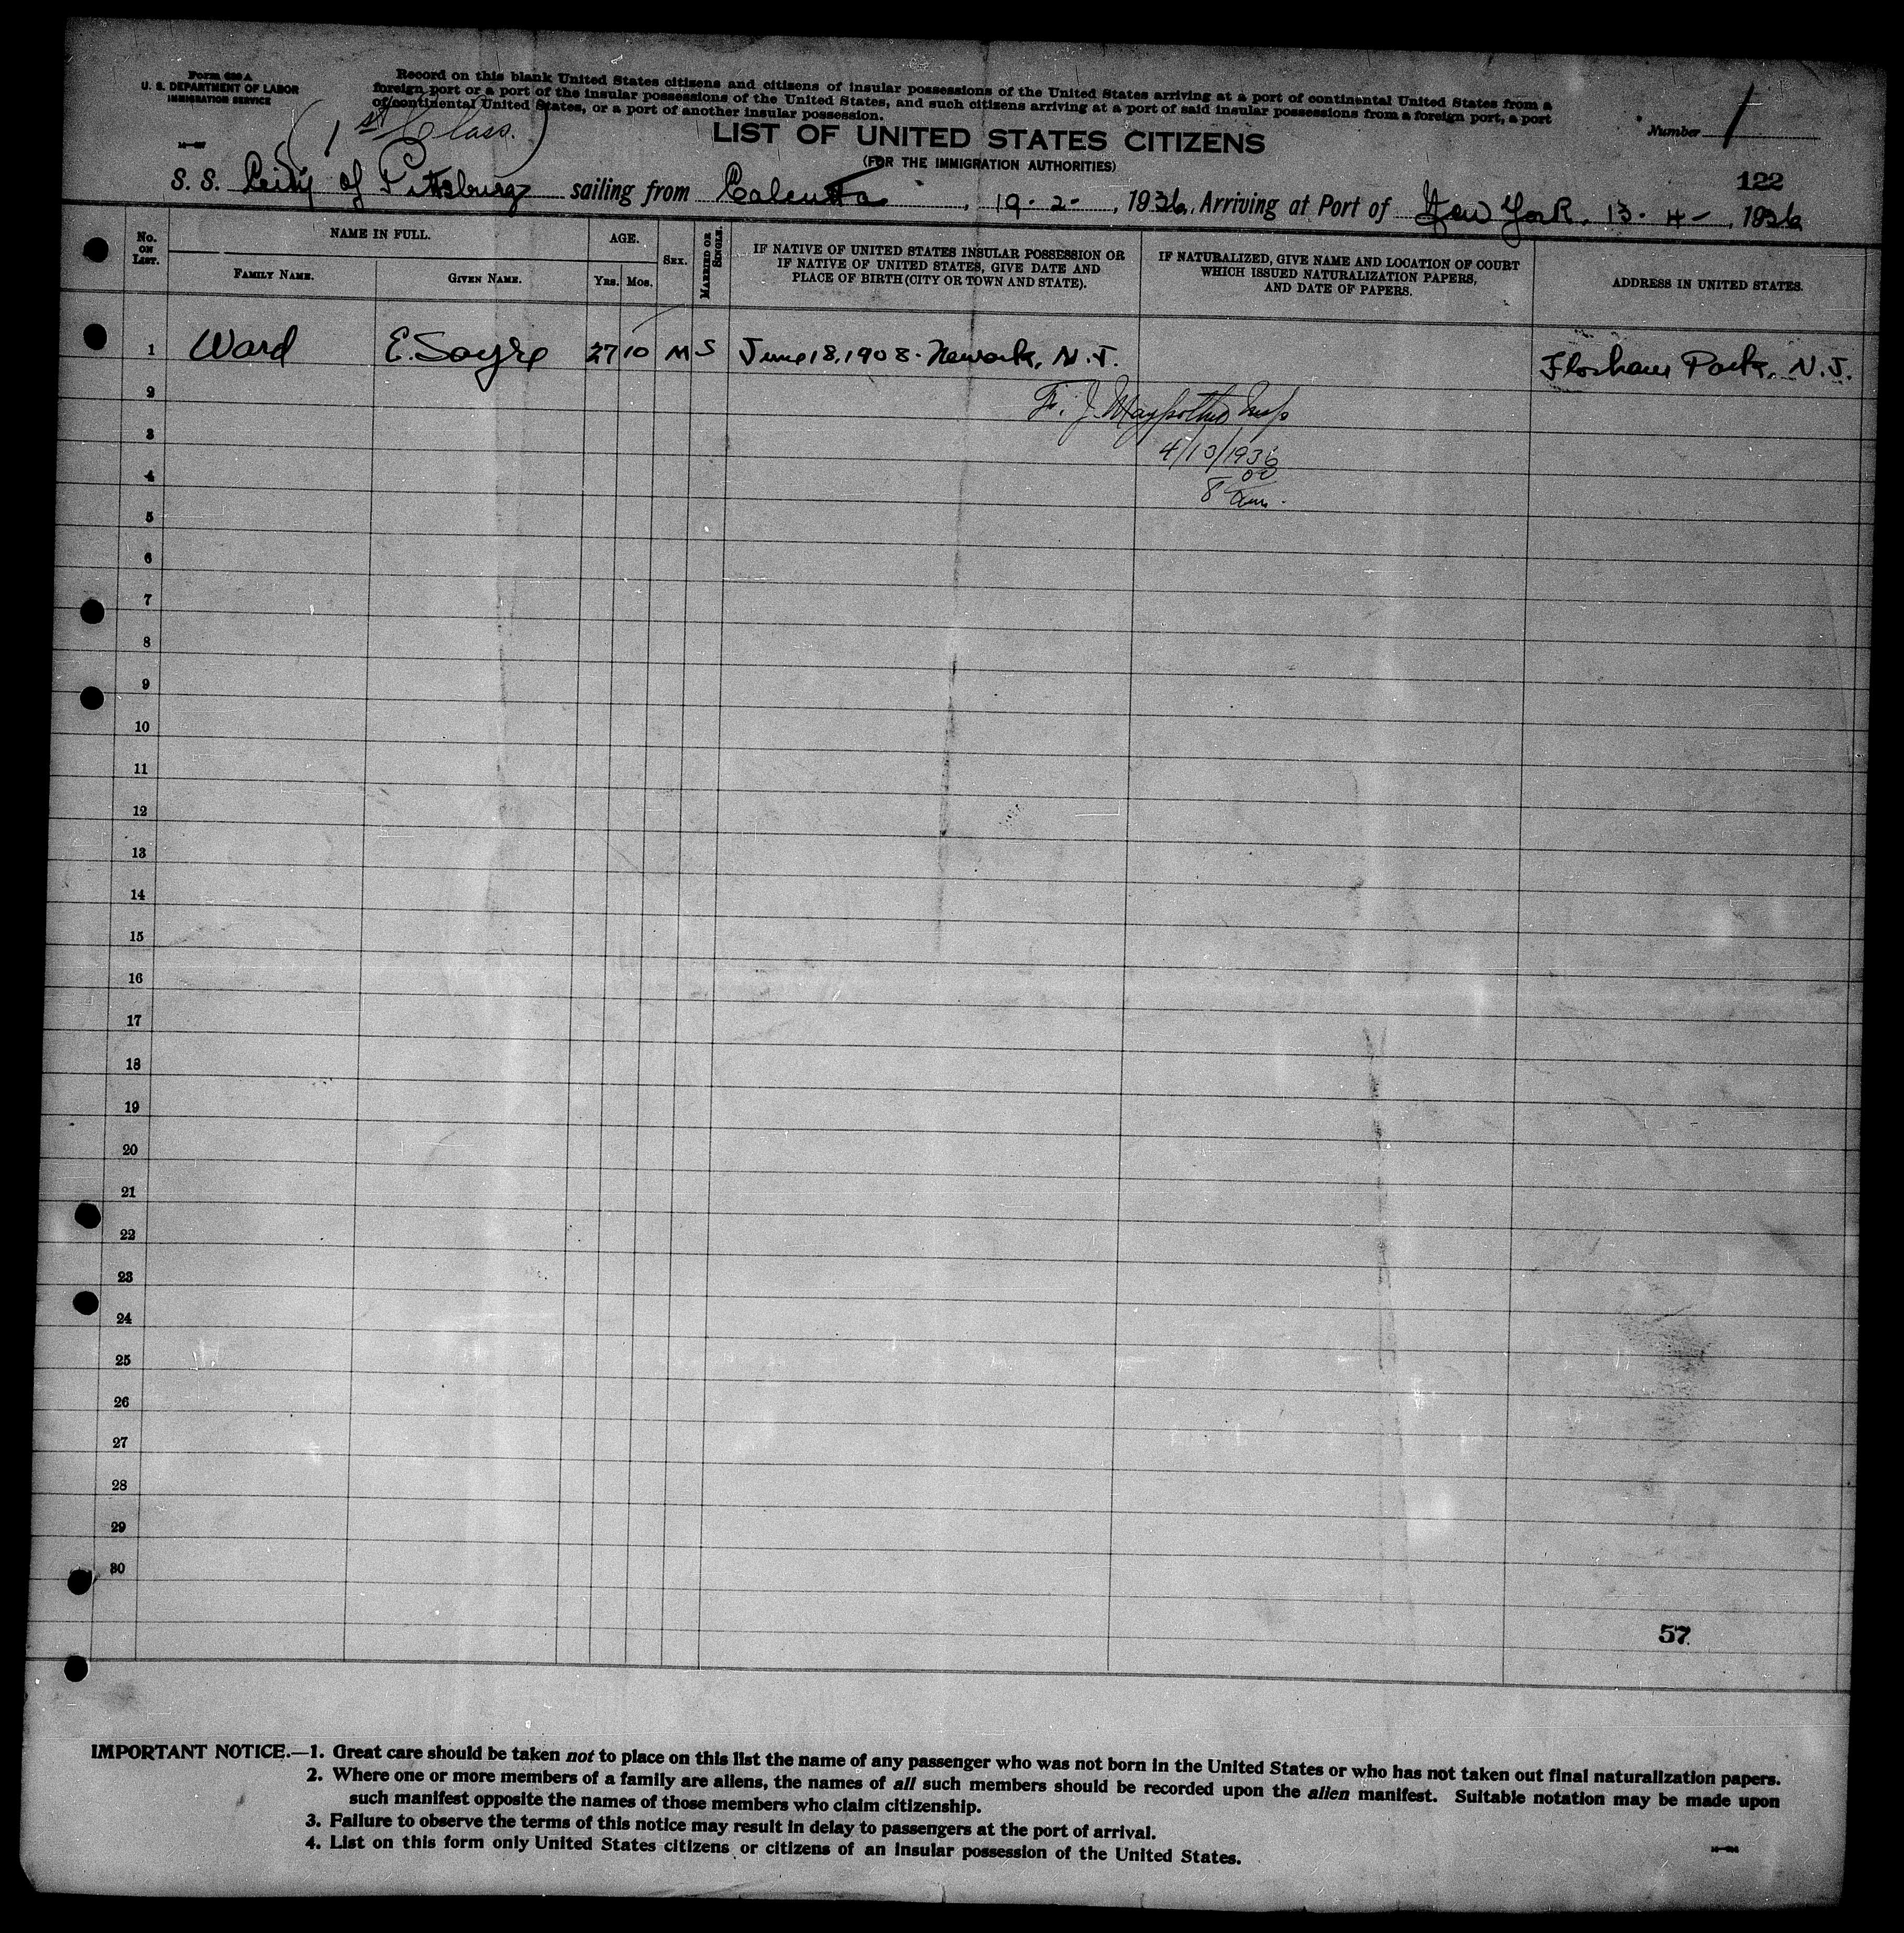 Form 630 A
U. S. DEPARTMENT OF LABOR
IMMIGRATION SERVICE
Record on this blank United States citizens and citizens of insular possessions of the United States arriving at a port of continental United States from a
foreign port or a port of the insular possessions of the United States, and such citizens arriving at a port of said insular possessions from a foreign port, a port
of continental United States, or a port of another insular possession.
(1st Class.)
LIST OF UNITED STATES CITIZENS
(FOR THE IMMIGRATION AUTHORITIES)
Number 1
122
S. S. City of Pittsburg sailing from Calcutta, 19-2-, 1936, Arriving at Port of New York, 13-4-, 1936
No. ON LIST.
NAME IN FULL.
FAMILY NAME.
GIVEN NAME.
AGE.
YRS.
MOS.
SEX.
MARRIED OR SINGLE.
IF NATIVE OF UNITED STATES INSULAR POSSESSION OR
IF NATIVE OF UNITED STATES, GIVE DATE AND
PLACE OF BIRTH (CITY OR TOWN AND STATE).
IF NATURALIZED, GIVE NAME AND LOCATION OF COURT
WHICH ISSUED NATURALIZATION PAPERS,
AND DATE OF PAPERS.
ADDRESS IN UNITED STATES.
1 Ward E. Sayre 27 10 M S June 18, 1908. Newark, N.J. Florham Park, N.J.
2
F. J. Insp
3
4/13/1936
4
8 00 am.
5
6
7
8
9
10
11
12
13
14
15
16
17
18
19
20
21
22
23
24
25
26
27
28
29
30
57
IMPORTANT NOTICE.—1. Great care should be taken not to place on this list the name of any passenger who was not born in the United States or who has not taken out final naturalization papers.
2. Where one or more members of a family are aliens, the names of all such members should be recorded upon the alien manifest. Suitable notation may be made upon
such manifest opposite the names of those members who claim citizenship.
3. Failure to observe the terms of this notice may result in delay to passengers at the port of arrival.
4. List on this form only United States citizens or citizens of an insular possession of the United States.